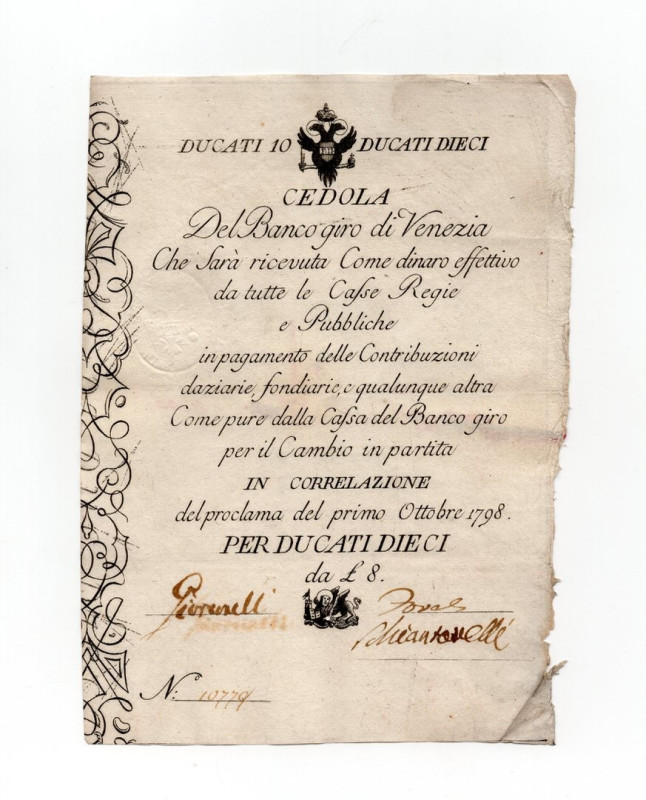 DUCATI 10 DUCATI DIECI
CEDOLA
Del Banco giro di Venezia
Che Sarà ricevuta Come dinaro effettivo
da tutte le Caſse Regie
e Pubbliche
in pagamento delle Contribuzioni
daziarie, fondiarie, e qualunque altra
Come pure dalla Caſsa del Banco giro
per il Cambio in partita
IN CORRELAZIONE
del proclama del primo Ottobre 1798.
PER DUCATI DIECI
da £ 8.
N.º 10779